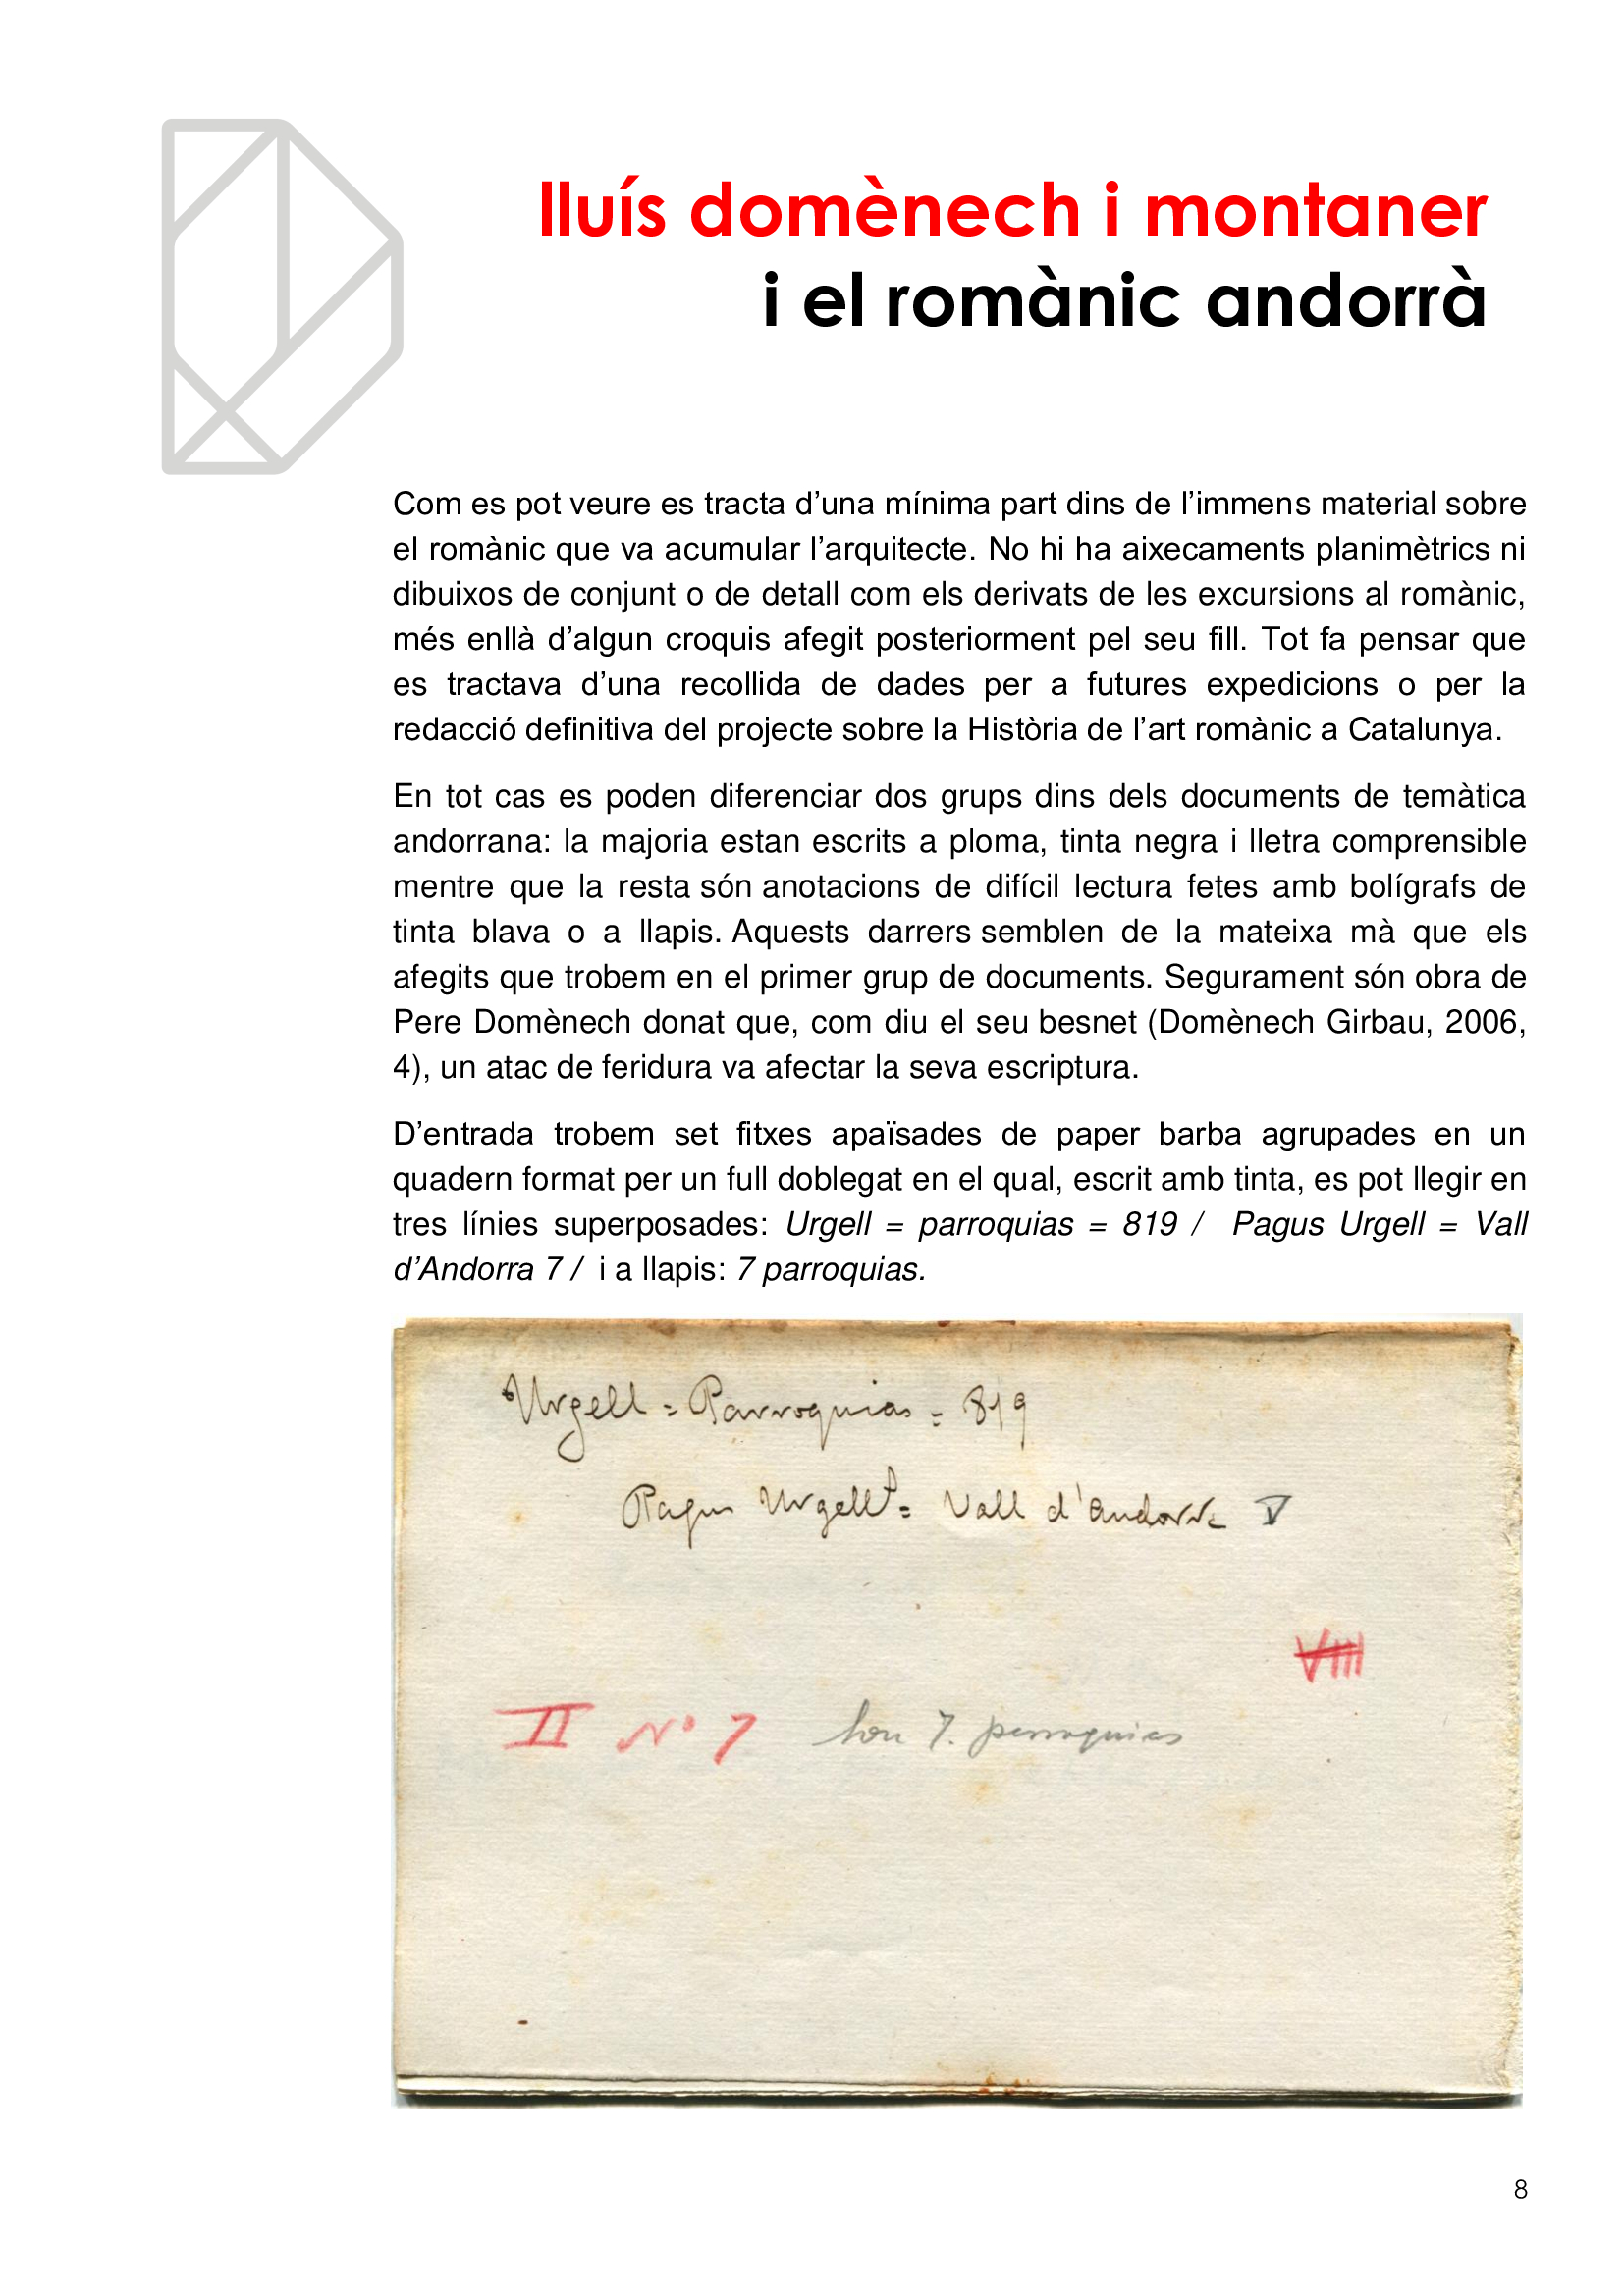 lluís domènech i montaner
i el romànic andorrà
Com es pot veure es tracta d’una mínima part dins de l’immens material sobre
el romànic que va acumular l’arquitecte. No hi ha aixecaments planimètrics ni
dibuixos de conjunt o de detall com els derivats de les excursions al romànic,
més enllà d’algun croquis afegit posteriorment pel seu fill. Tot fa pensar que
es tractava d’una recollida de dades per a futures expedicions o per la
redacció definitiva del projecte sobre la Història de l’art romànic a Catalunya.
En tot cas es poden diferenciar dos grups dins dels documents de temàtica
andorrana: la majoria estan escrits a ploma, tinta negra i lletra comprensible
mentre que la resta són anotacions de difícil lectura fetes amb bolígrafs de
tinta blava o a llapis. Aquests darrers semblen de la mateixa mà que els
afegits que trobem en el primer grup de documents. Segurament són obra de
Pere Domènech donat que, com diu el seu besnet (Domènech Girbau, 2006,
4), un atac de feridura va afectar la seva escriptura.
D’entrada trobem set fitxes apaïsades de paper barba agrupades en un
quadern format per un full doblegat en el qual, escrit amb tinta, es pot llegir en
tres línies superposades: Urgell = parroquias = 819 / Pagus Urgell = Vall
d’Andorra 7 / i a llapis: 7 parroquias.
Urgell = Parroquias = 819
Pagus Urgell = Vall d'Andorra V
VIII
II Nº 7 son 7. parroquias
8